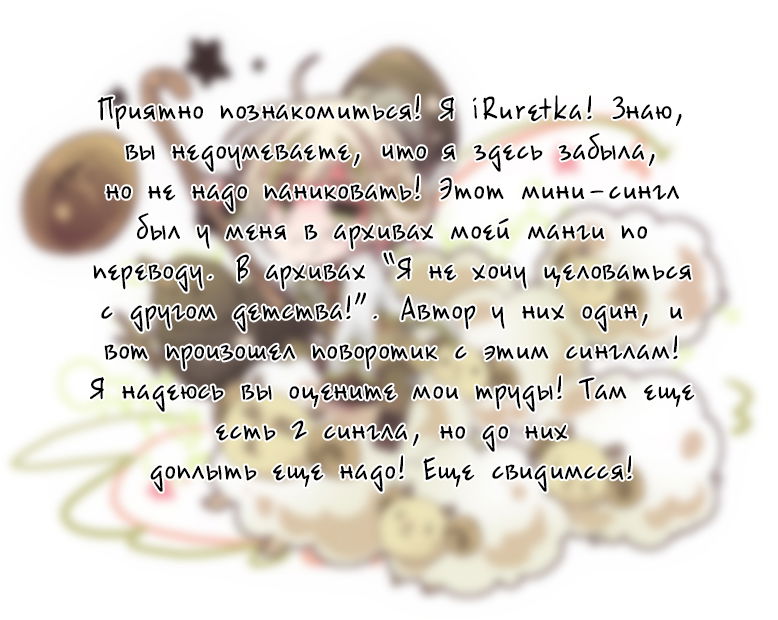 Приятно познакомиться! Я iRuretka! Знаю,
вы недоумеваете, что я здесь забыла,
но не надо паниковать! Этот мини-сингл
был у меня в архивах моей манги по
переводу. В архивах "Я не хочу целоваться
с другом детства!". Автор у них один, и
вот произошел поворотик с этим синглам!
Я надеюсь вы оцените мои труды! Там еще
есть 2 сингла, но до них
доплыть еще надо! Еще свидимсся!